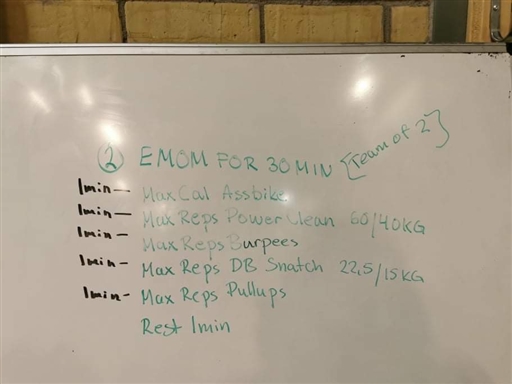 ② EMOM FOR 30 MIN [Team of 2]
1min— Max Cal Assbike
1min— Max Reps Power Clean 60/40KG
1min— Max Reps Burpees
1min— Max Reps DB Snatch 22,5/15KG
1min- Max Reps Pullups
Rest 1min